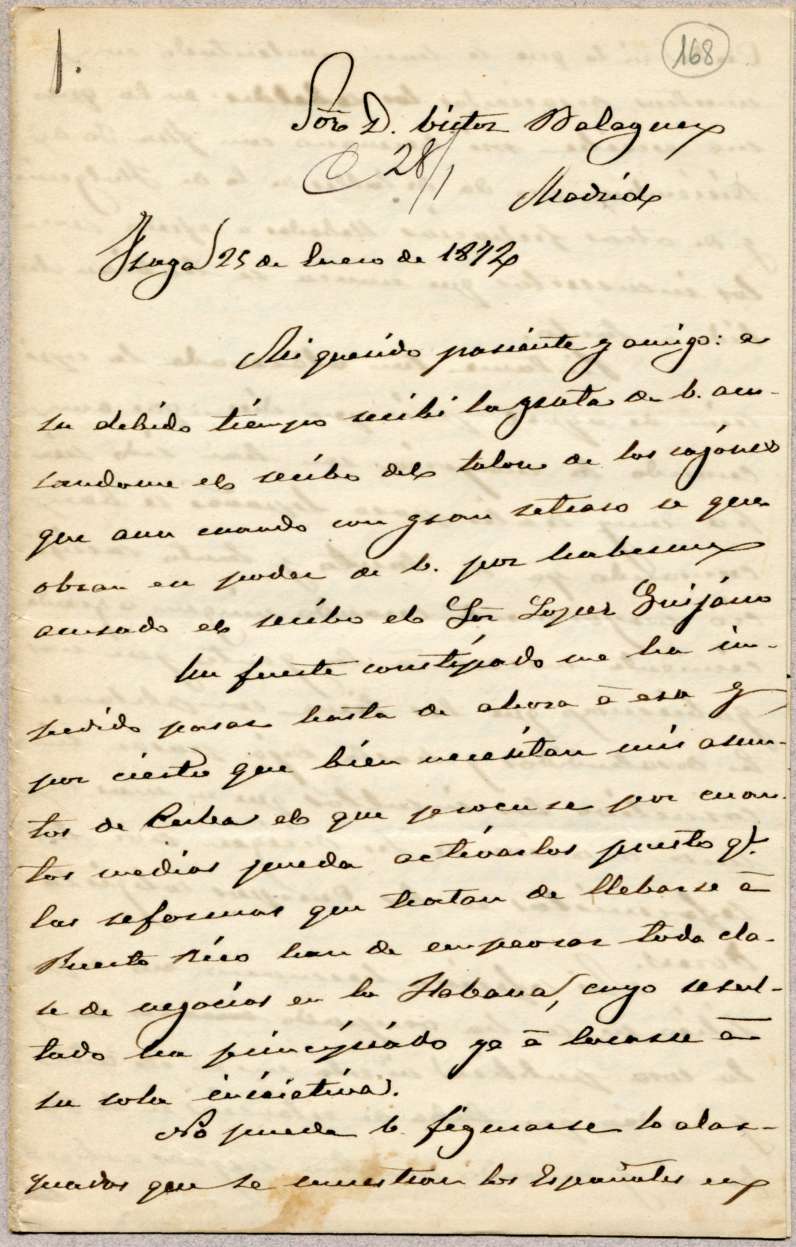 1.
168
Sor. D. Victor Balaguer
C 28/1
Madrid
25 de Enero de 1872
Mi querido pariente y amigo: a
su debido tiempo recibi la grata de V. acu-
sandome el recibo del talon de los cajones
que aun cuando con gran retraso se que
obran en poder de V. por haberme
acusado el recibo el Sor Lopez Guijarro
Un fuerte constipado me ha im-
pedido pasar hasta de ahora á esa y
por cierto que bien necesitan mis asun-
tos de Cuba el que procure por cuan-
tos medios pueda activarlos puesto qe.
las reformas que tratan de llebarse á
Puerto Rico han de empeorar toda cla-
se de negocios en la Habana, cuyo resul-
tado ha principiado ya á tocarse á
su sola iniciativa.
No puede V. figurarse lo alar-
mados que se muestran los Españoles en